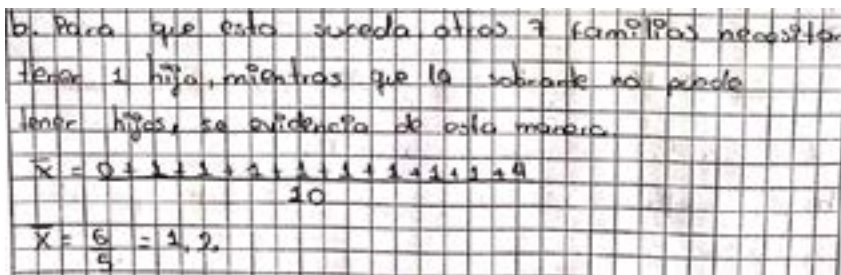 b. Para que esto suceda otras 7 familias necesitan
tener 1 hijo, mientras que la sobrante no puede
tener hijos, se evidencia de esta manera.
X̄ = 0 + 1 + 1 + 1 + 1 + 1 + 1 + 1 + 1 + 4
10
X̄ = 6/5 = 1,2.